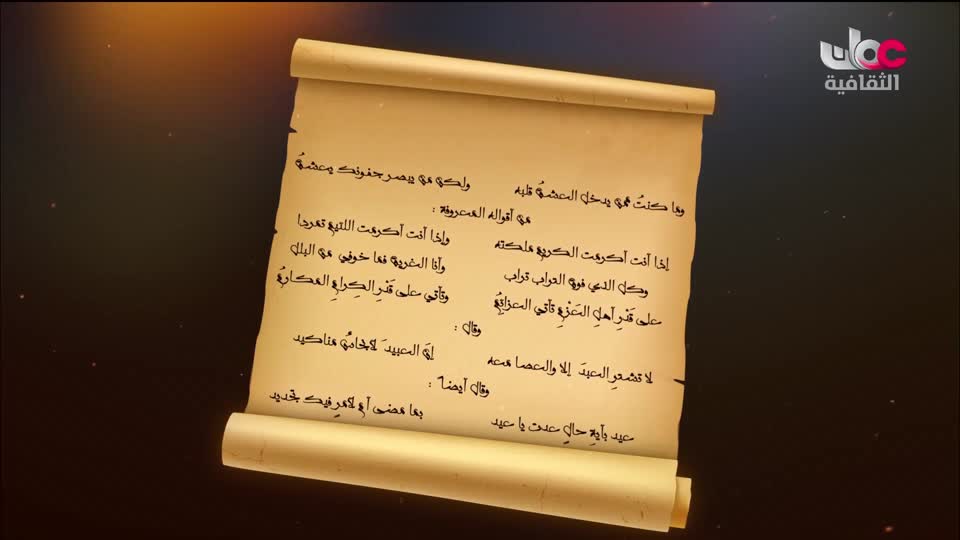 عمان
الثقافية
وما كنتُ ممن يدخل العشقُ قلبه ولكن من يبصر جفونك يعشقُ
من أقواله المعروفة :
إذا أنت أكرمت الكريم ملكته وإذا أنت أكرمت اللئيم تمردا
وكل الذي فوق التراب تراب وأنا الغريق فما خوفي من البلل
على قَدْرِ أهلِ العَزْمِ تأتي العزائمُ وتأتي على قَدْرِ الكِرامِ المكارمُ
وقال :
لا تشترِ العبدَ إلا والعصا معه إنَّ العبيدَ لأنجاسٌ مناكيد
وقال أيضاً :
عيد بأيةِ حالٍ عدت يا عيد بما مضى أم لأمرٍ فيك تجديد